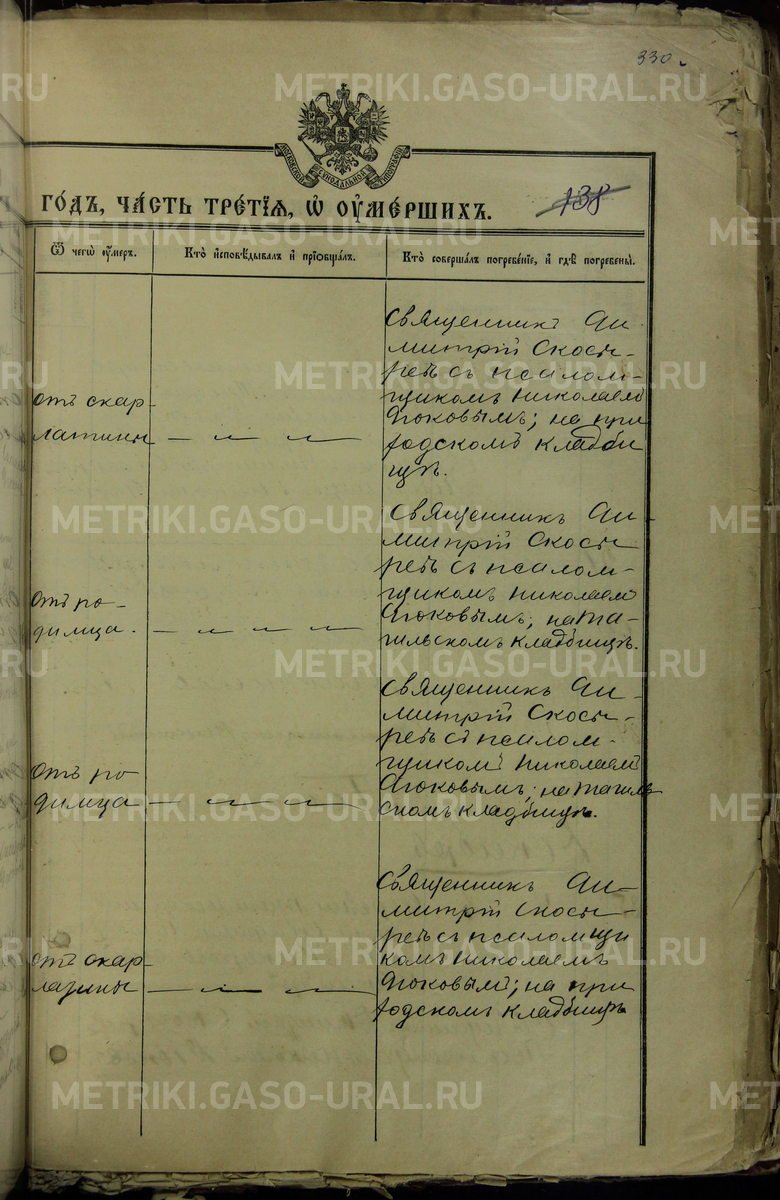 330.
МОСКОВСКОЙ СѴНОДАЛЬНОЙ ТИПОГРАФІИ
ГО́ДЪ, ЧА́СТЬ ТРЕ́ТІѦ, Ѡ҆ ОУ҆МЕ́РШИХЪ.
138
Ѿ чегѡ̀ ᲂу҆́меръ.
Кто̀ и҆сповѣ́дывалъ и҆ прїѡбща́лъ.
Кто̀ соверша́лъ погребе́нїе, и҆ гдѣ̀ погребены̀.
отъ скар-
латины
Священникъ Ди-
митрій Скосы-
ревъ съ псалом-
щикомъ Николаемъ
на при
ходскомъ кладби
щѣ.
отъ ро-
димца.
Священникъ Ди-
митрій Скосы-
ревъ съ псалом-
щикомъ Николаемъ
на Та-
гильскомъ кладбищѣ.
отъ ро
димца
Священникъ Ди-
митрій Скосы-
ревъ съ псалом-
щикомъ Николаемъ
на Тагиль
скомъ кладбищѣ.
отъ скар-
латины
Священникъ Ди-
митрій Скосы-
ревъ съ псаломщи
комъ Николаемъ
на при
ходскомъ кладбищѣ
METRIKI.GASO-URAL.RU